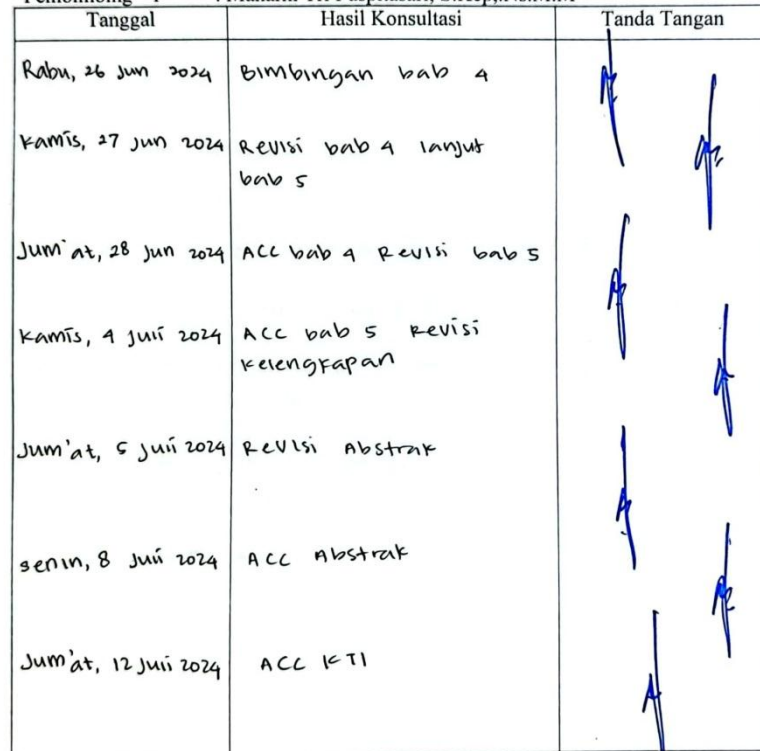 Tanggal Hasil Konsultasi Tanda Tangan
Rabu, 26 Jun 2024 Bimbingan bab 4
Kamis, 27 Jun 2024 Revisi bab 4 lanjut
bab 5
Jum'at, 28 Jun 2024 ACC bab 4 Revisi bab 5
Kamis, 4 Juli 2024 ACC bab 5 Revisi
Kelengkapan
Jum'at, 5 Juli 2024 Revisi Abstrak
Senin, 8 Juli 2024 ACC Abstrak
Jum'at, 12 Juli 2024 ACC KTI